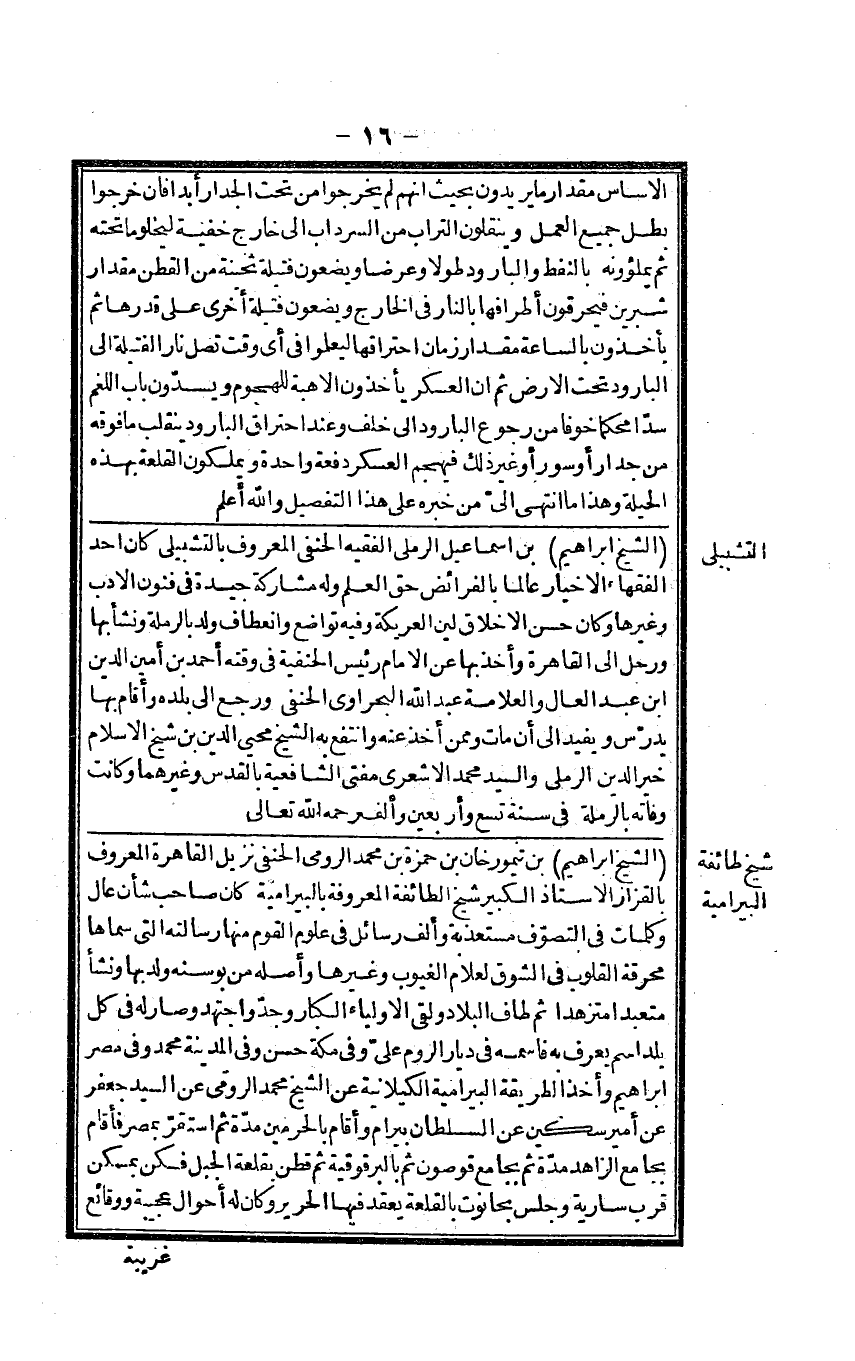 - ١٦ -
الاساس مقدار ما يريدون بحيث انهم لم يخرجوا من تحت الجدار أبدا فان خرجوا
بطل جميع العمل وينقلون التراب من السرداب الى خارج خفية ليخلو ما تحته
ثم يملؤونه بالنفط والبارود طولا وعرضا ويضعون فتيلة ثخينة من القطن مقدار
شبرين فيحرقون أطرافها بالنار فى الخارج ويضعون فتيلة أخرى على قدرها ثم
يأخذون بالساعة مقدار زمان احتراقها ليعلوا فى أى وقت تصل نار الفتيلة الى
البارود تحت الارض ثم ان العسكر يأخذون الاهبة للهجوم ويسدّون باب اللغم
سدّا محكما خوفا من رجوع البارود الى خلف وعند احتراق البارود ينقلب ما فوقه
من جدار أو سور أو غير ذلك فيهجم العسكر دفعة واحدة ويملكون القلعة بهذه
الحيلة وهذا ما انتهى الىّ من خبره على هذا التفصيل والله أعلم
التشبيلى
(الشيخ ابراهيم) بن اسماعيل الرملى الفقيه الحنفى المعروف بالتشبيلى كان احد
الفقهاء الاخيار عالما بالفرائض حق العلم وله مشاركة جيدة فى فنون الادب
وغيرها وكان حسن الاخلاق لين العريكة وفيه تواضع وانعطاف ولد بالرملة ونشأ بها
ورحل الى القاهرة وأخذ بها عن الامام رئيس الحنفية فى وقته أحمد بن أمين الدين
ابن عبد العال والعلامة عبد الله البحراوى الحنفى ورجع الى بلده وأقام بها
يدرّس ويفيد الى أن مات وممن أخذ عنه وانتفع به الشيخ محيى الدين بن شيخ الاسلام
خير الدين الرملى والسيد محمد الاشعرى مفتى الشافعية بالقدس وغيرهما وكانت
وفاته بالرملة فى سنة تسع وأربعين وألف رحمه الله تعالى
شيخ طائفة
البيرامية
(الشيخ ابراهيم) بن تيمور خان بن حمزة بن محمد الرومى الحنفى نزيل القاهرة المعروف
بالقزاز الاستاذ الكبير شيخ الطائفة المعروفة بالبيرامية كان صاحب شأن عال
وكلمات فى التصوّف مستعذبة وألف رسائل فى علوم القوم منها رسالته التى سماها
محرقة القلوب فى الشوق لعلام الغيوب وغيرها وأصله من بوسنه ولد بها ونشأ
متعبدا متزهدا ثم طاف البلاد ولقى الاولياء الكبار وجدّ واجتهد وصار له فى كل
بلد اسم يعرف به فاسمه فى ديار الروم علىّ وفى مكة حسن وفى المدينة محمد وفى مصر
ابراهيم وأخذ الطريقة البيرامية الكيلانية عن الشيخ محمد الرومى عن السيد جعفر
عن أمير سكين عن السلطان بيرام وأقام بالحرمين مدّة ثم استقرّ بمصر فأقام
بجامع الزاهد مدّة ثم بجامع قوصون ثم بالبرقوقية ثم قطن بقلعة الجبل فسكن بمسكن
قرب سارية وجلس بحانوت بالقلعة يعقد فيها الحرير وكان له أحوال عجيبة ووقائع
غريبة